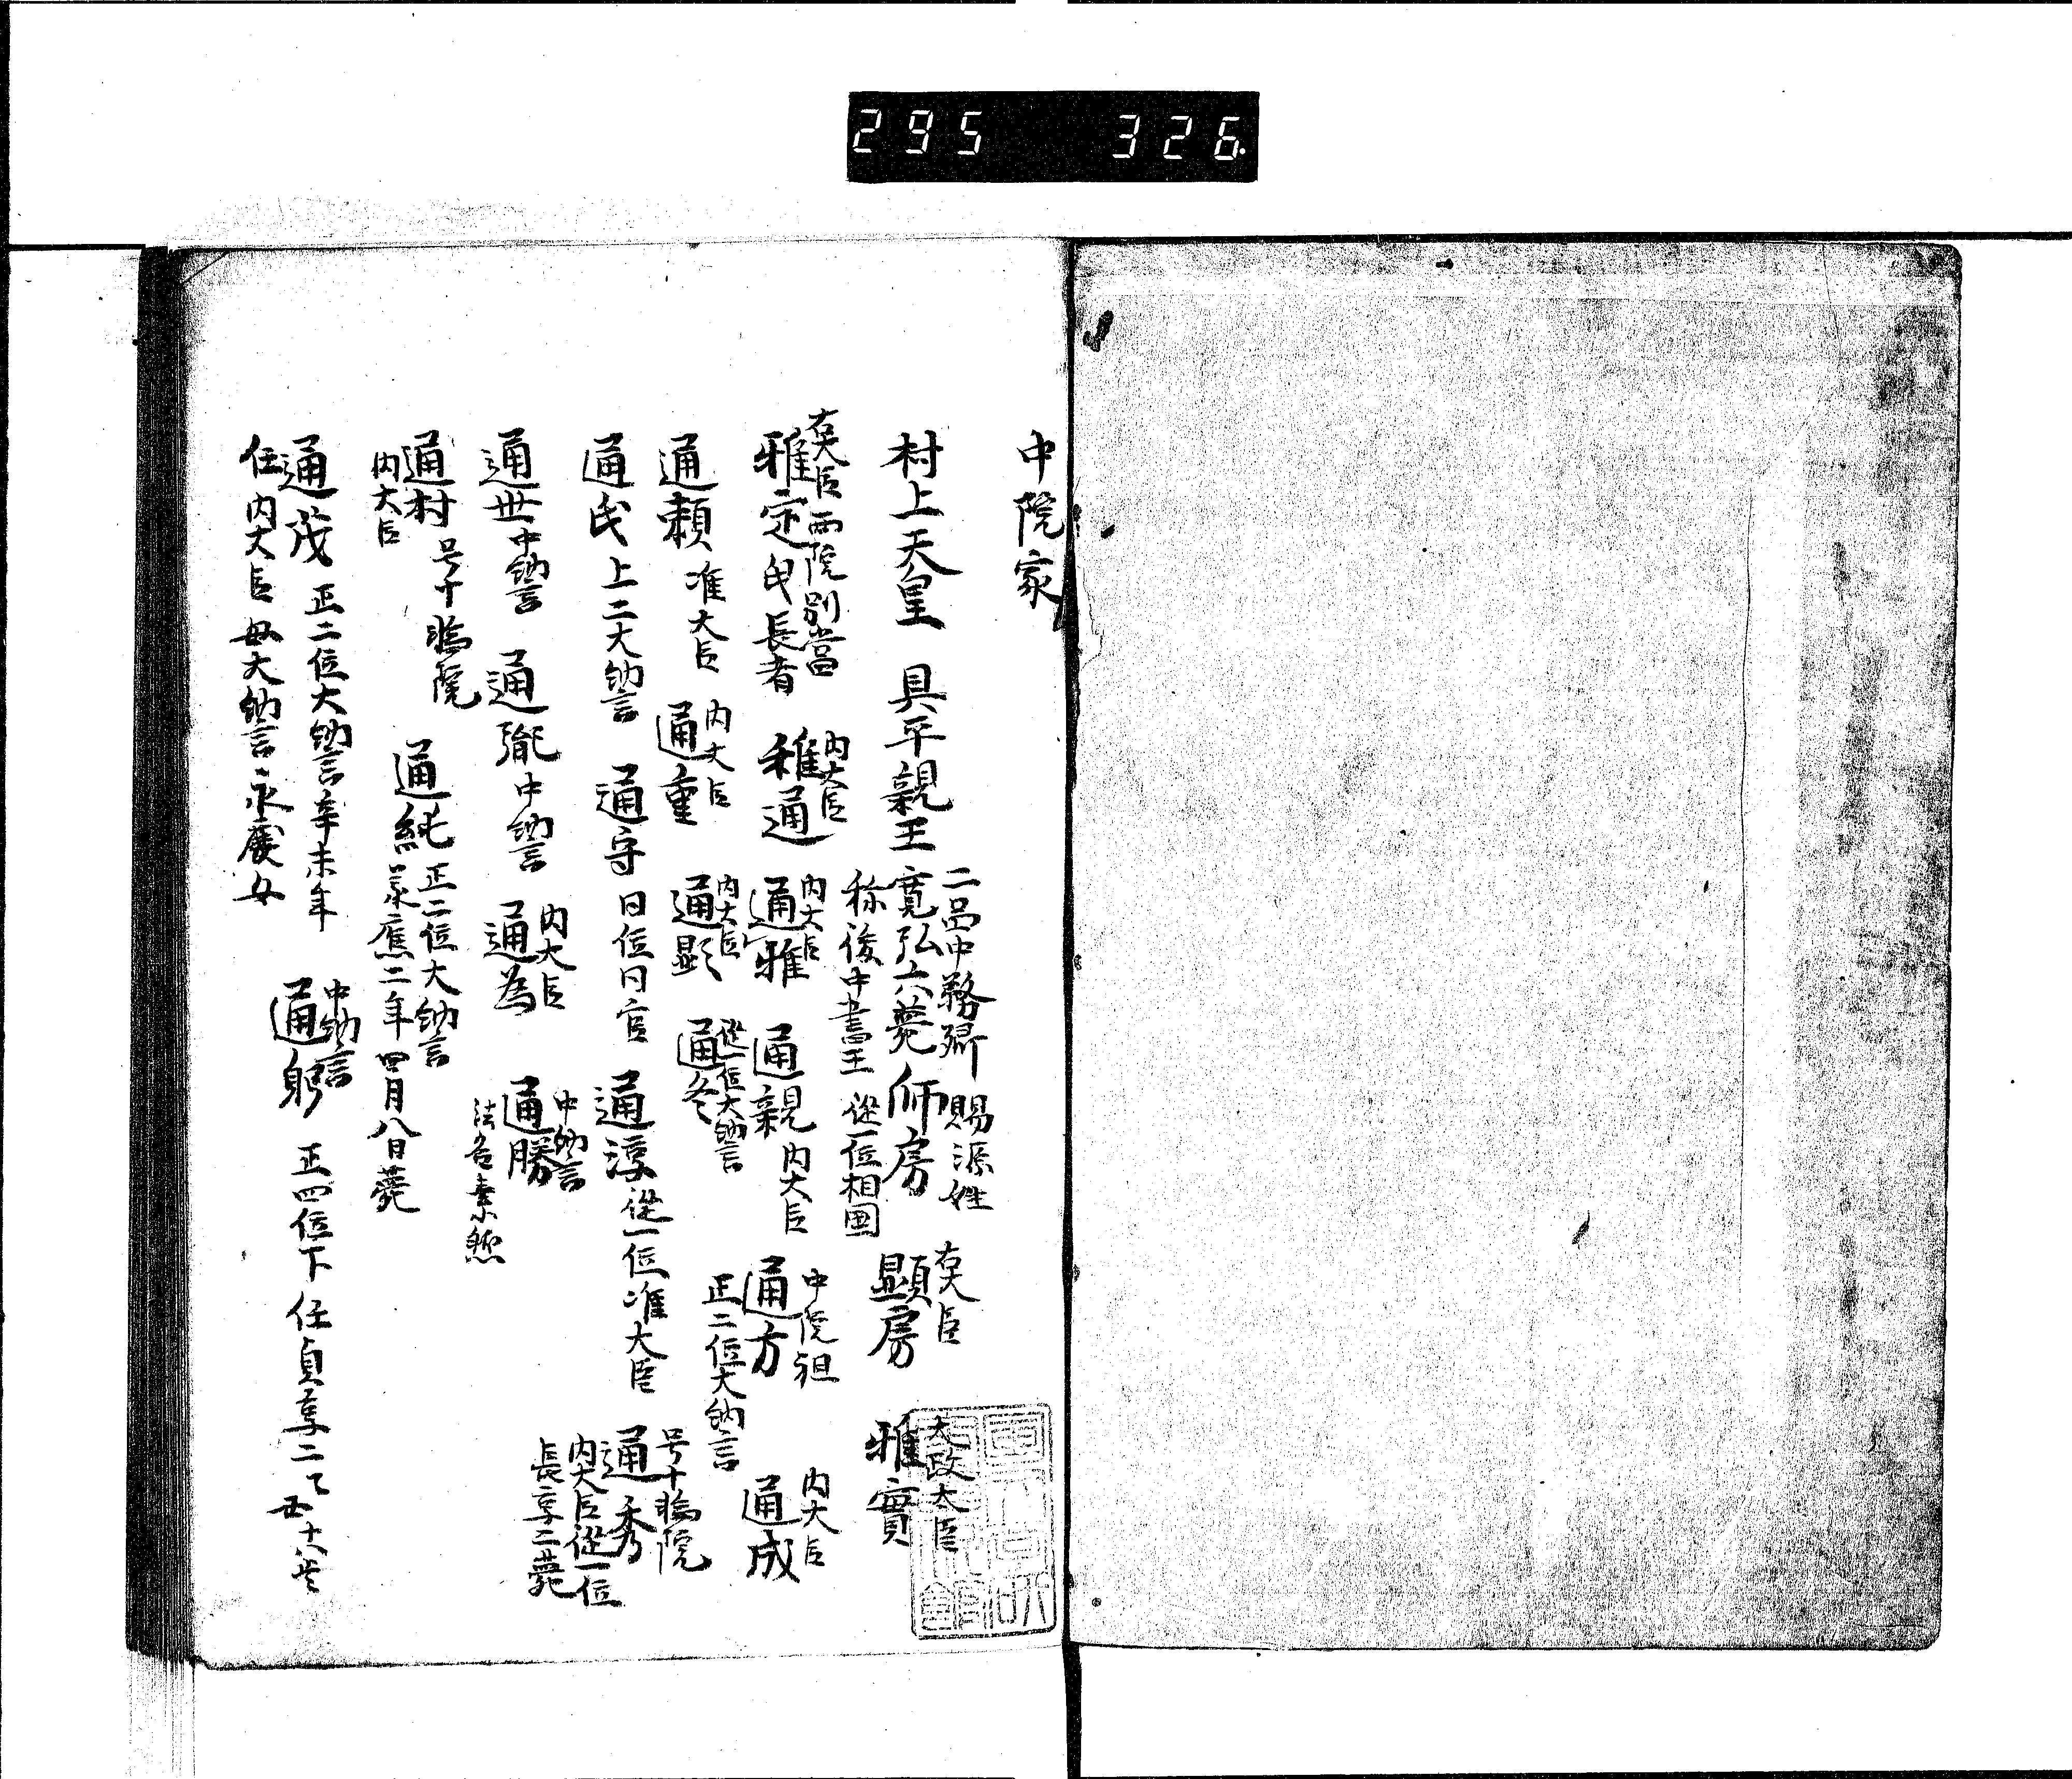 295 326
中院家
村上天皇 具平親王 二品中務卿 寛弘六薨 称後中書王 師房 賜源姓 従一位相国 顕房 右大臣 雅實 太政大臣
雅定 右大臣 両院別當 氏長者 雅通 内大臣 通雅 内大臣 通親 内大臣 通方 中院祖 正二位大納言 通成 内大臣
通頼 准大臣 通重 内大臣 通顕 内大臣 通冬 従一位大納言
通氏 上二大納言 通守 同位同官 通淳 従一位准大臣 通秀 号十輪院 内大臣従一位 長享二薨
通世 中納言 通胤 中納言 通為 内大臣 通勝 中納言 法名素然
通村 号十輪院 内大臣 通純 正二位大納言 承應二年四月八日薨
通茂 正二位大納言辛未年 任内大臣 母大納言永慶女 通躬 中納言 正四位下 任貞享二